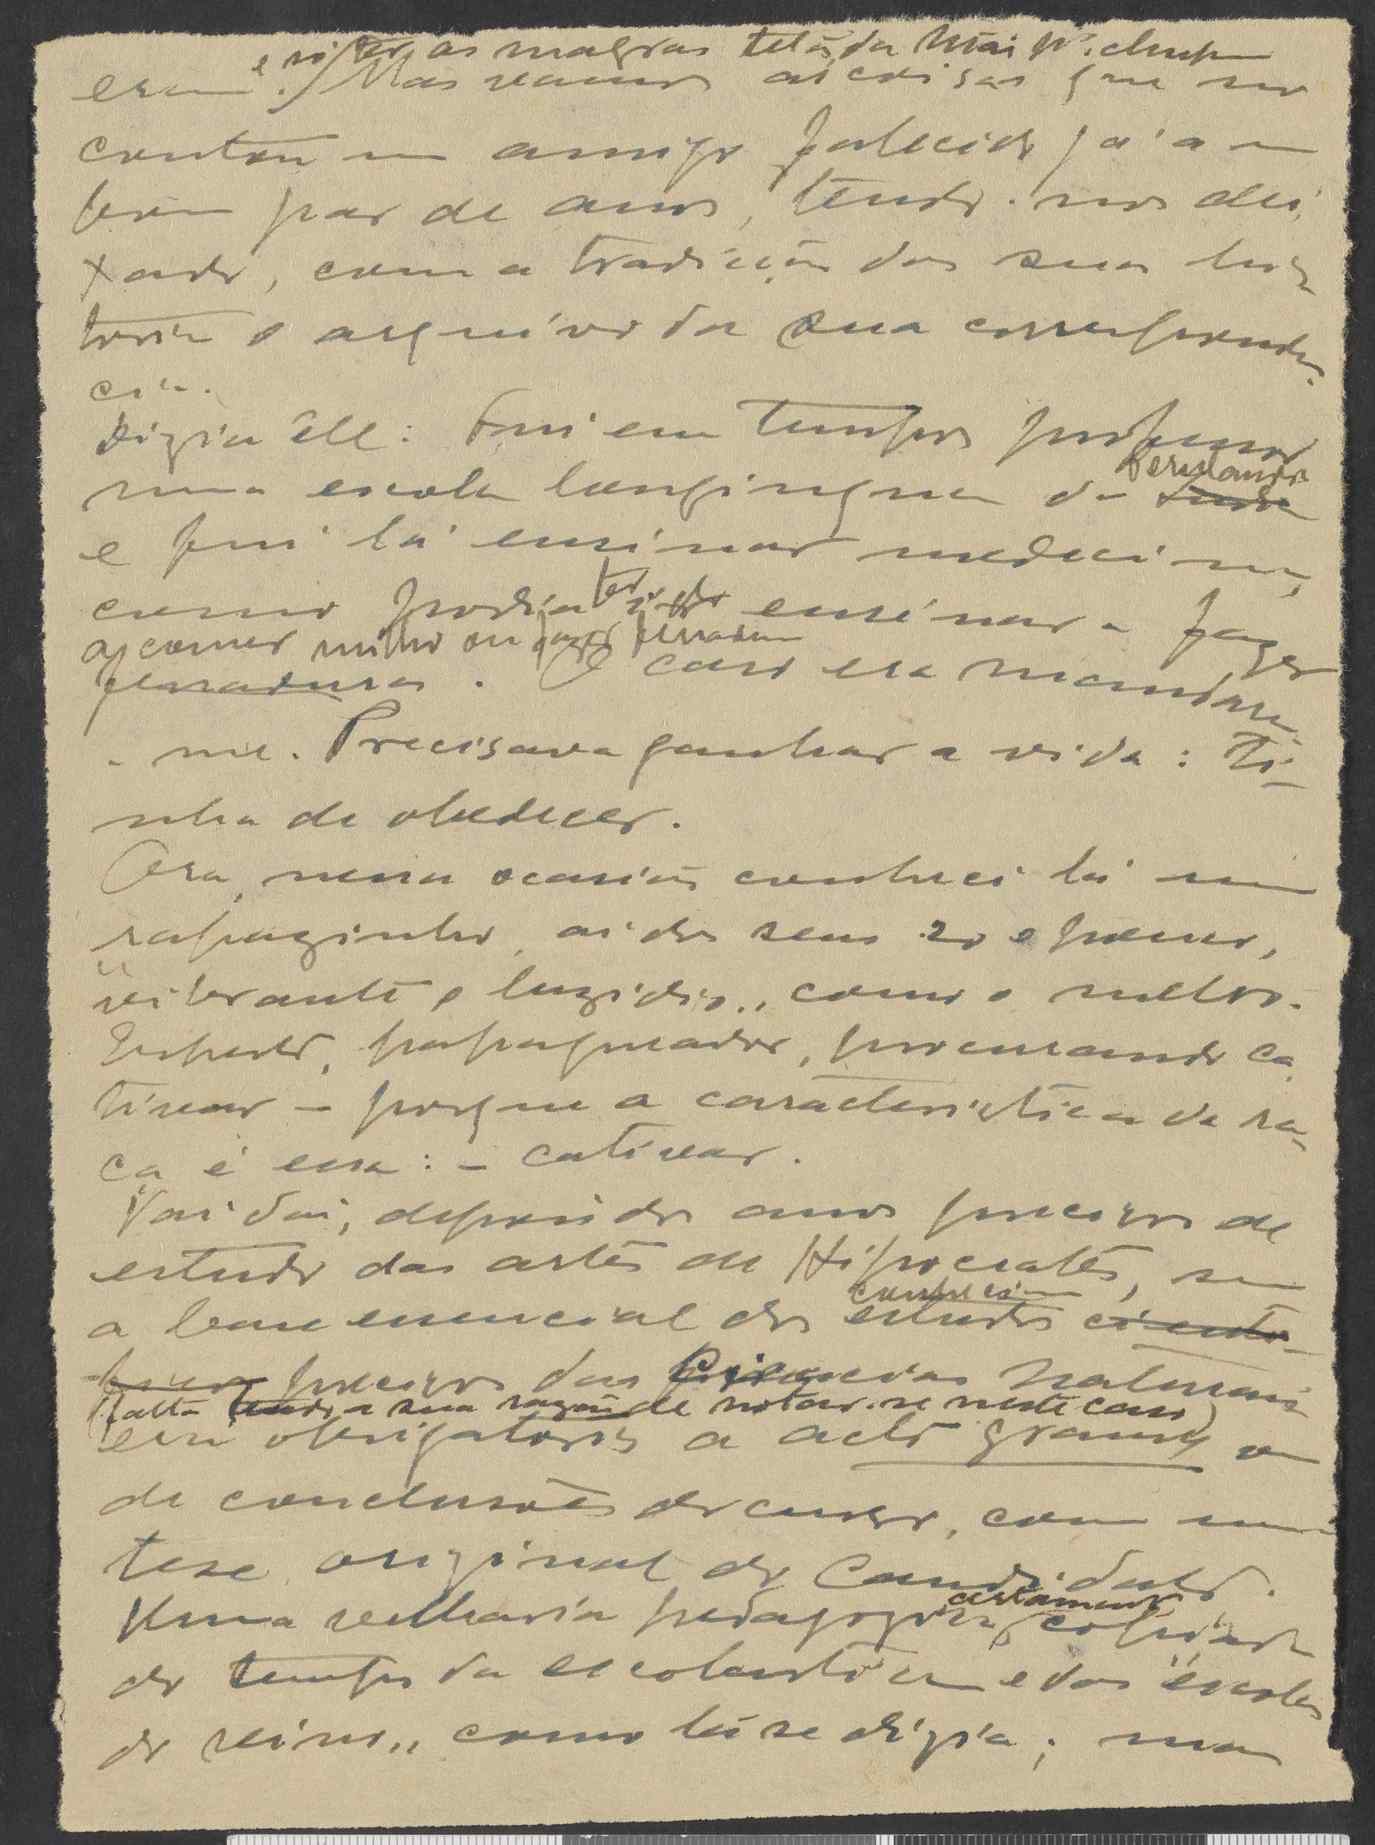 e as magras tetas da Mãi p.ª chupar
eram. Mas vamos às coisas que me
contou um amigo falecido já a um
bom par de anos, tendo-nos dei-
xado, com a tradição da sua his-
toria o arquivo da sua correspondên-
cia.
Dizia êle: Fui em tempos professor
numa escola longinqua de
e fui lá ensinar medicina,
como podia ter ido ensinar a fazer
a comer milho ou fazer ferradura
ferraduras. O caso era mandarem
-me. Precisava ganhar a vida: ti-
nha de obedecer.
Ora, nessa ocasião conheci lá um
rapazinho, aí dos seus 20 e poucos,
"vibrante e luzidio,, como o melro.
Esperto, papagueador, procurando ca-
tivar — porque a caracteristica da ra-
ça é essa: — cativar.
Vai daí, depois dos anos precisos de
estudo das artes de Hipocrates, sem
a base essencial dos estudos
precisos das Ciencias Naturais
(falta a sua razão de notar-se neste caso)
era obrigatorio a acto grande ou
de conclusões do curso, com uma
tese original do Candidato.
Uma velharia pedagogica, certamente copiada
do tempo da escolastica e das "escolas
do reino,, como lá se dizia; mas